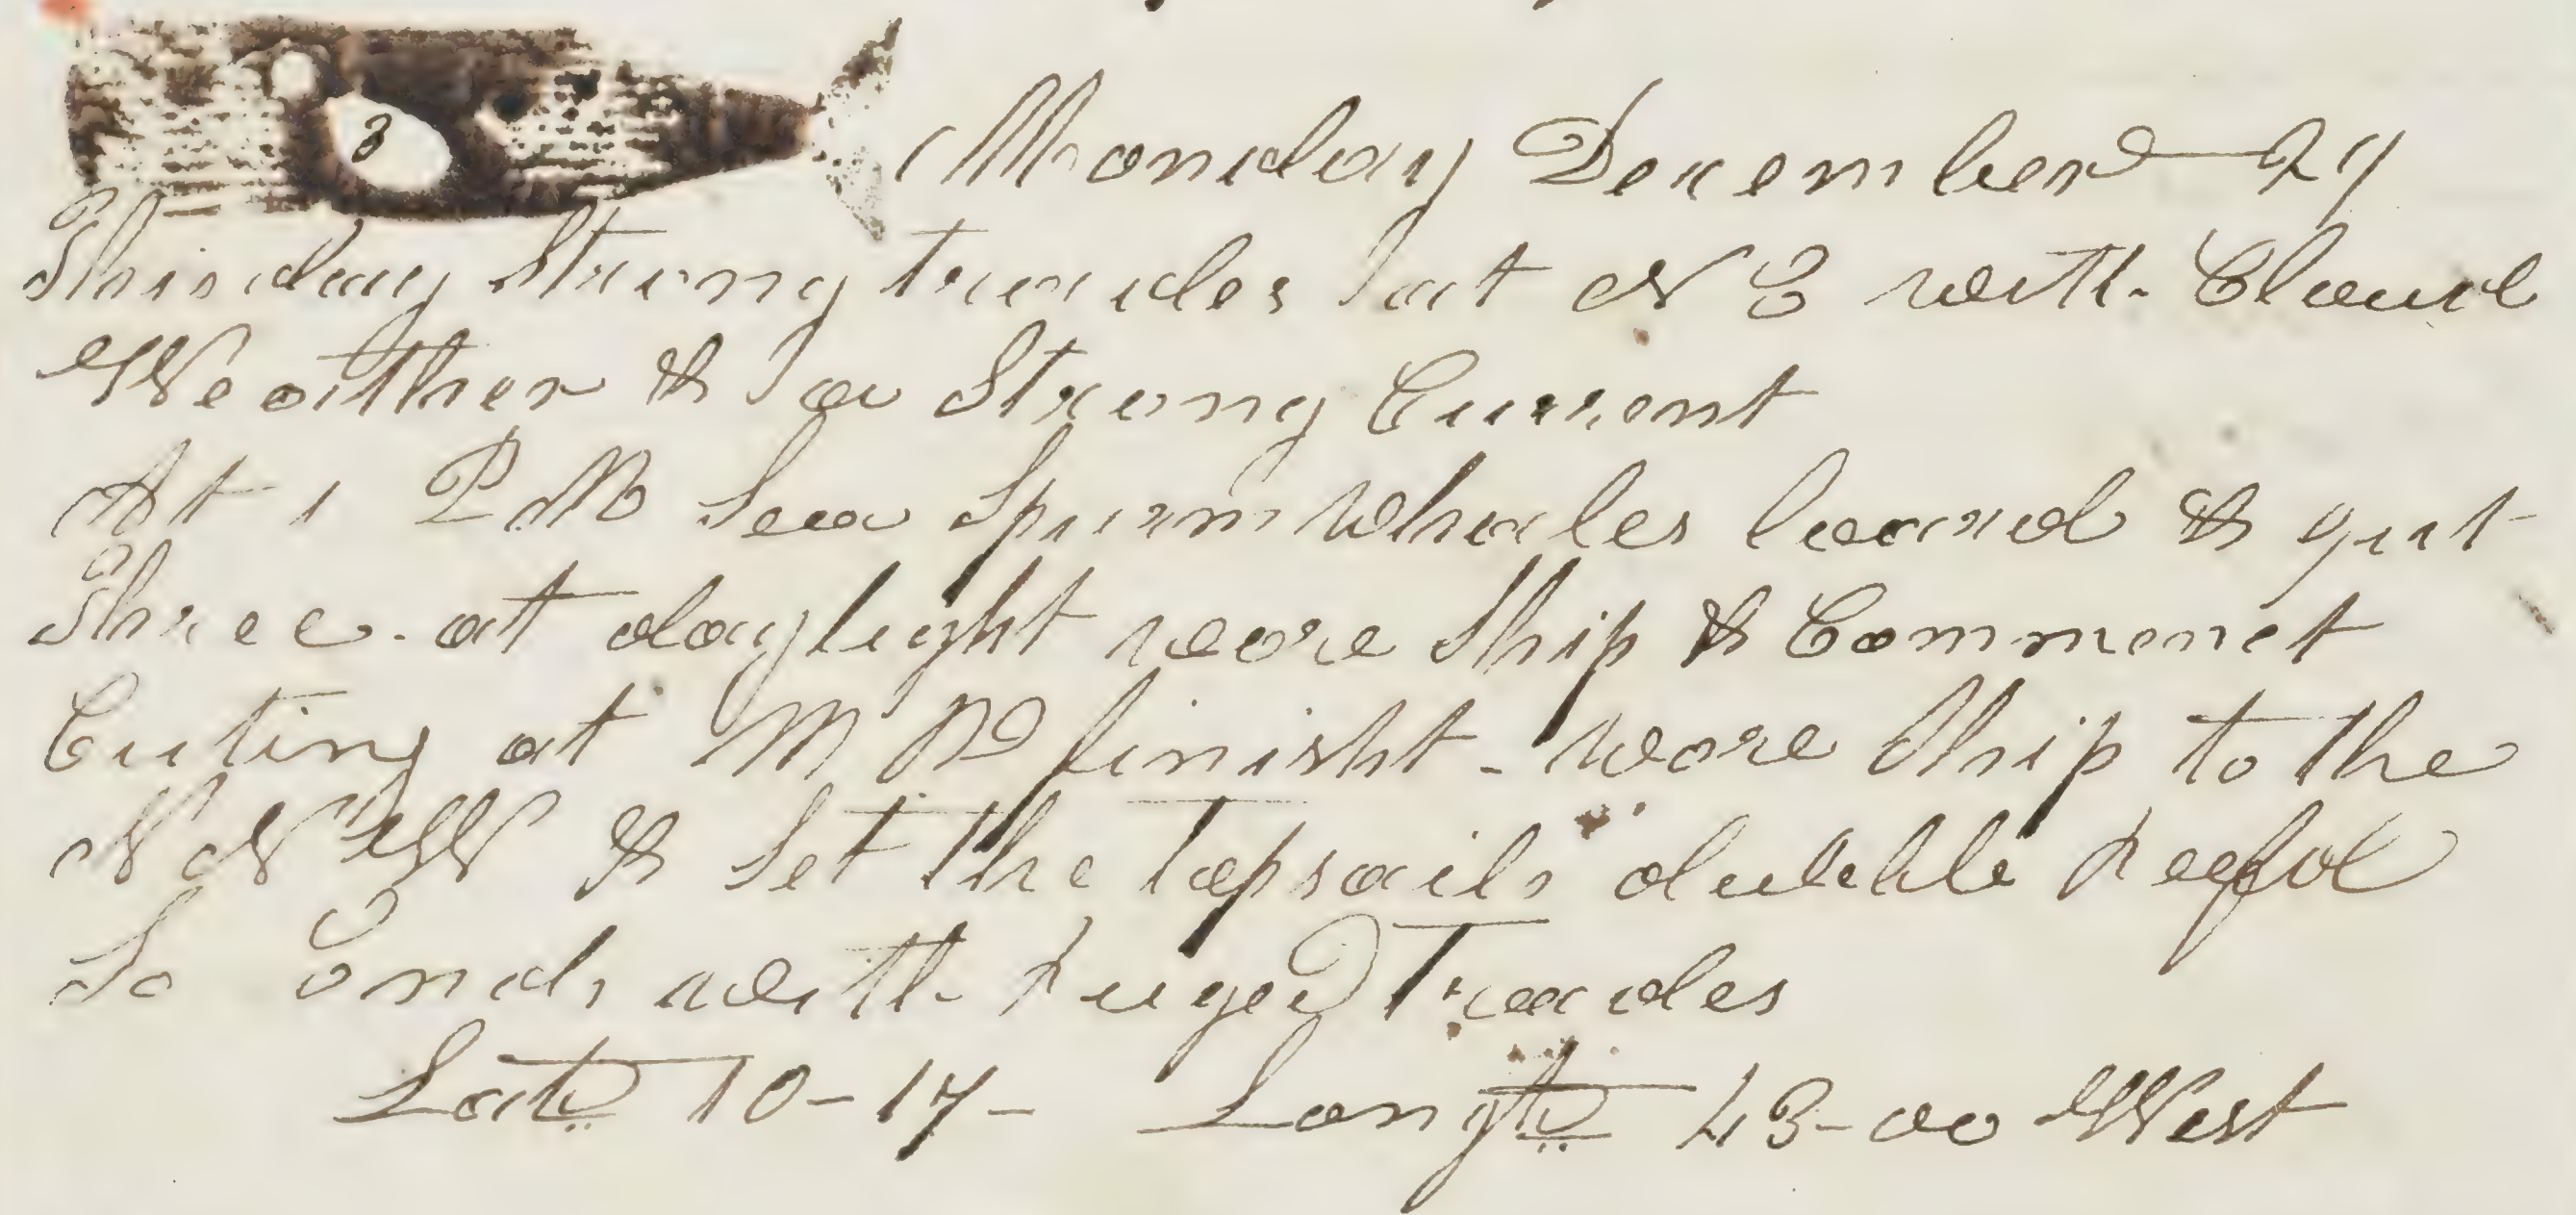 3
Monday December 27
This day Strong trades at N E with Cloud
Weather & a Strong Current
At 1 P M Sea Spurm Whales loard & gut
Three. at daylight wore Ship & Commenct
Cuting at M D finisht - wore Ship to the
N N W & Set the Topsails dubble reefd
So Ends with ruged Trades
Latd 10-17- Longtd 43-00 West